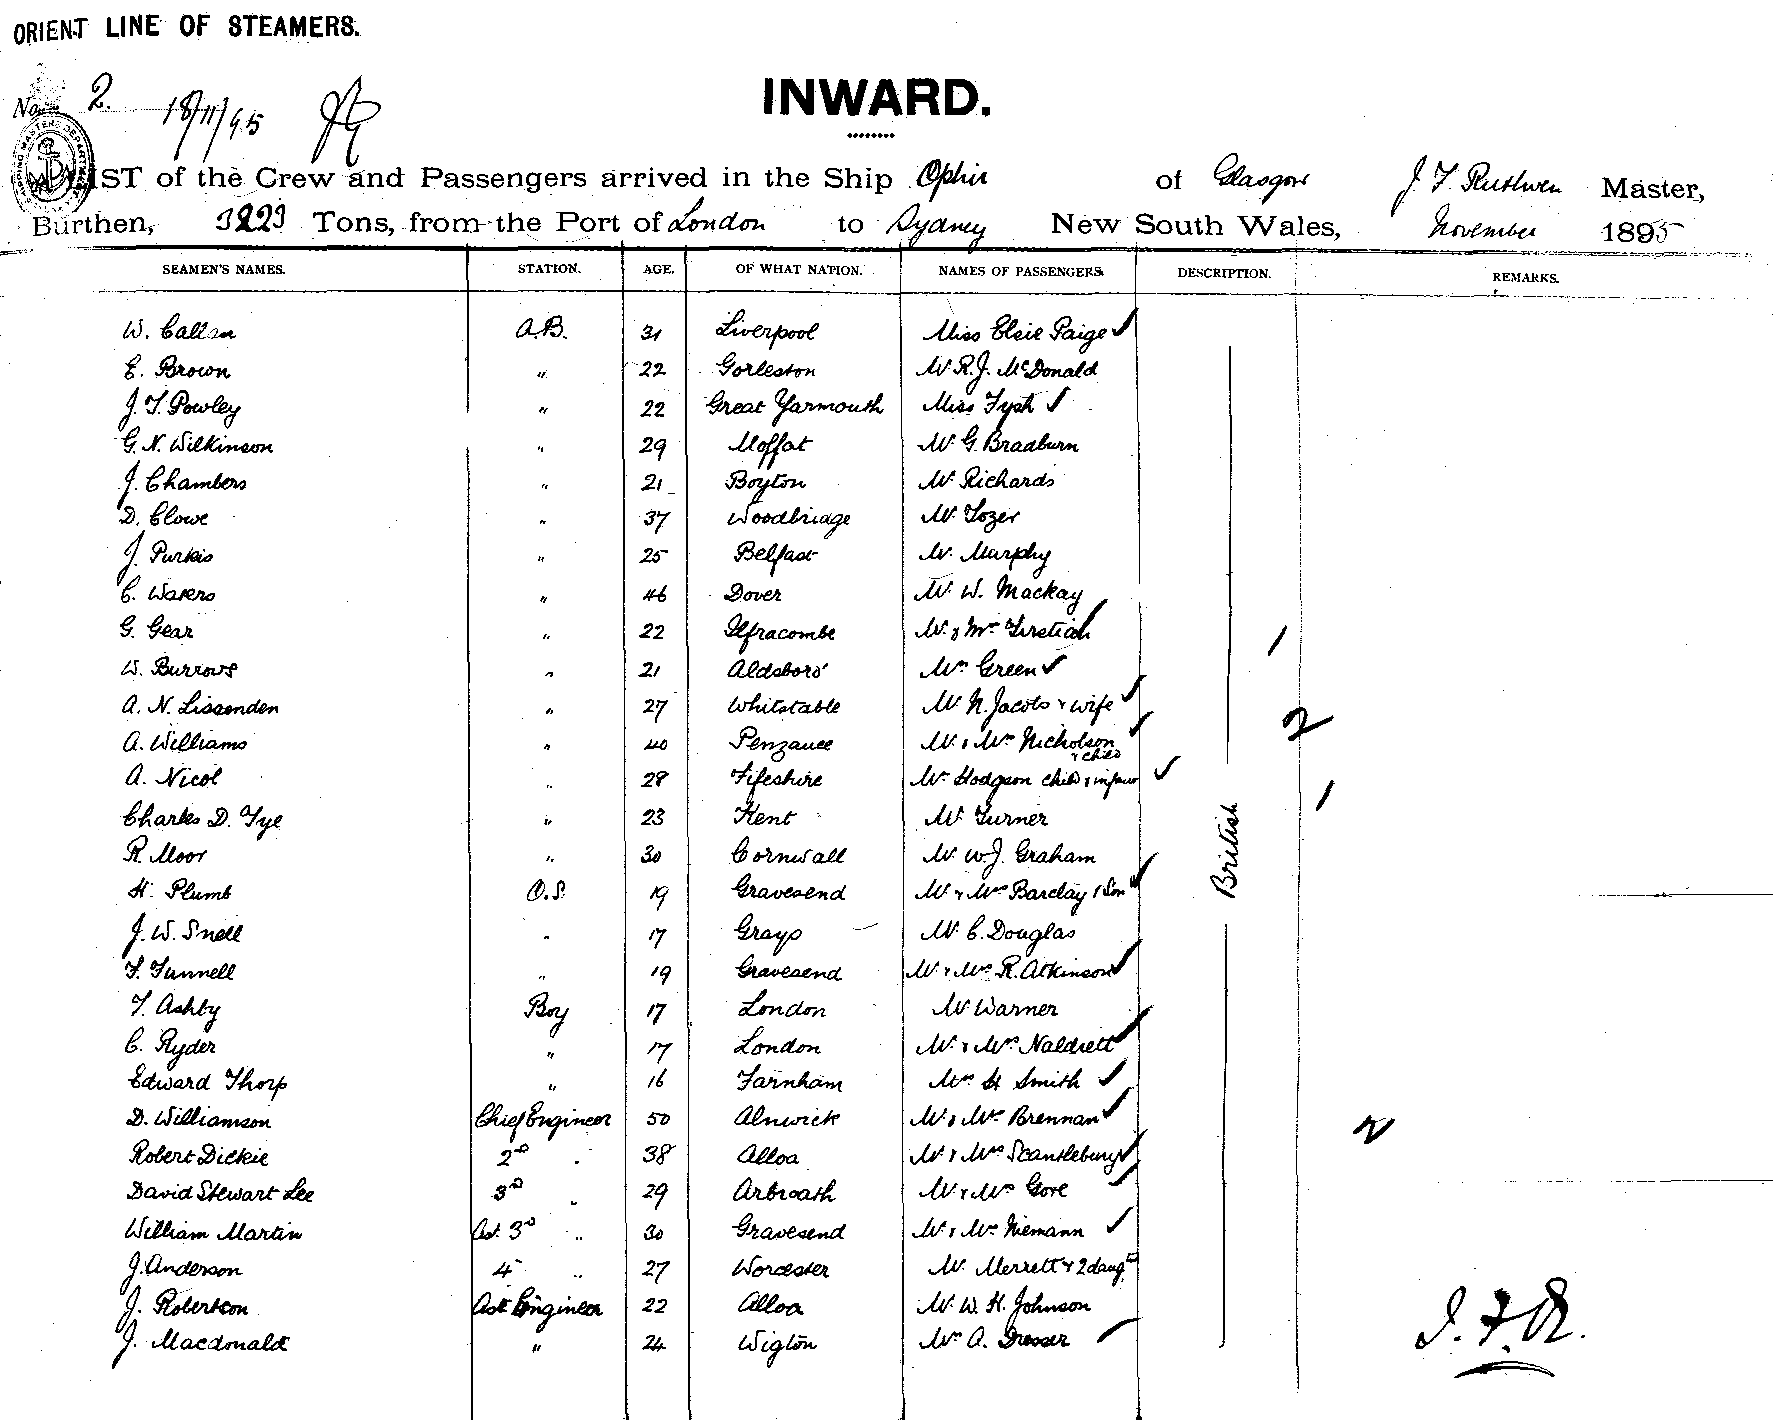 ORIENT LINE OF STEAMERS.
No. 2. 18/11/95
INWARD.
LIST of the Crew and Passengers arrived in the Ship Ophir of Glasgow J F Ruthven Master,
Burthen, 3223 Tons, from the Port of London to Sydney New South Wales, November 1895
SEAMEN'S NAMES. STATION. AGE. OF WHAT NATION. NAMES OF PASSENGERS. DESCRIPTION. REMARKS.
W. Callan A.B. 31 Liverpool Miss Elsie Paige ✓
E. Brown " 22 Gorleston Mr R.J. McDonald
J. T. Powley " 22 Great Yarmouth Miss Fysh ✓
G. N. Wilkinson " 29 Moffat Mr G. Bradburn
J. Chambers " 21 Boyton Mr Richards
D. Clowe " 37 Woodbridge Mr Tozer
J. Purkis " 25 Belfast Mr Murphy
C. Waters " 46 Dover Mr W. Mackay
G. Gear " 22 Ilfracombe Mr & Mrs ✓ 1
W. Burrows " 21 Aldsboro' Mrs Green ✓
A. N. Lissenden " 27 Whitstable Mr N. Jacobs & wife ✓
A. Williams " 40 Penzance Mr & Mrs Nicholson & child ✓ 2
A. Nicol " 28 Fifeshire Mrs Hodgson child & infant ✓
Charles D. Tye " 23 Kent Mr Turner 1
R. Moor " 30 Cornwall Mr W.J. Graham
British
H. Plumb O.S. 19 Gravesend Mr & Mrs Barclay 1 Son ✓
J. W. Snell " 17 Grays Mr C. Douglas
F. Funnell " 19 Gravesend Mr & Mrs R. Atkinson ✓
T. Ashby Boy 17 London Mr Warner
C. Ryder " 17 London Mr & Mrs Naldrett ✓
Edward Thorp " 16 Farnham Mrs H Smith ✓
D. Williamson Chief Engineer 50 Alnwick Mr & Mrs Brennan ✓ 2
Robert Dickie 2nd " 38 Alloa Mr & Mrs Scantlebury ✓
David Stewart Lee 3rd " 29 Arbroath Mr & Mrs Gore ✓
William Martin Ast. 3rd " 30 Gravesend Mr & Mrs Niemann ✓
J. Anderson 4th " 27 Worcester Mr Merrett & 2 daugrs
J. Robertson Ast Engineer 22 Alloa Mr W. H. Johnson
J. Macdonald " 24 Wigton Mrs A. Dresser ✓
J. F. R.